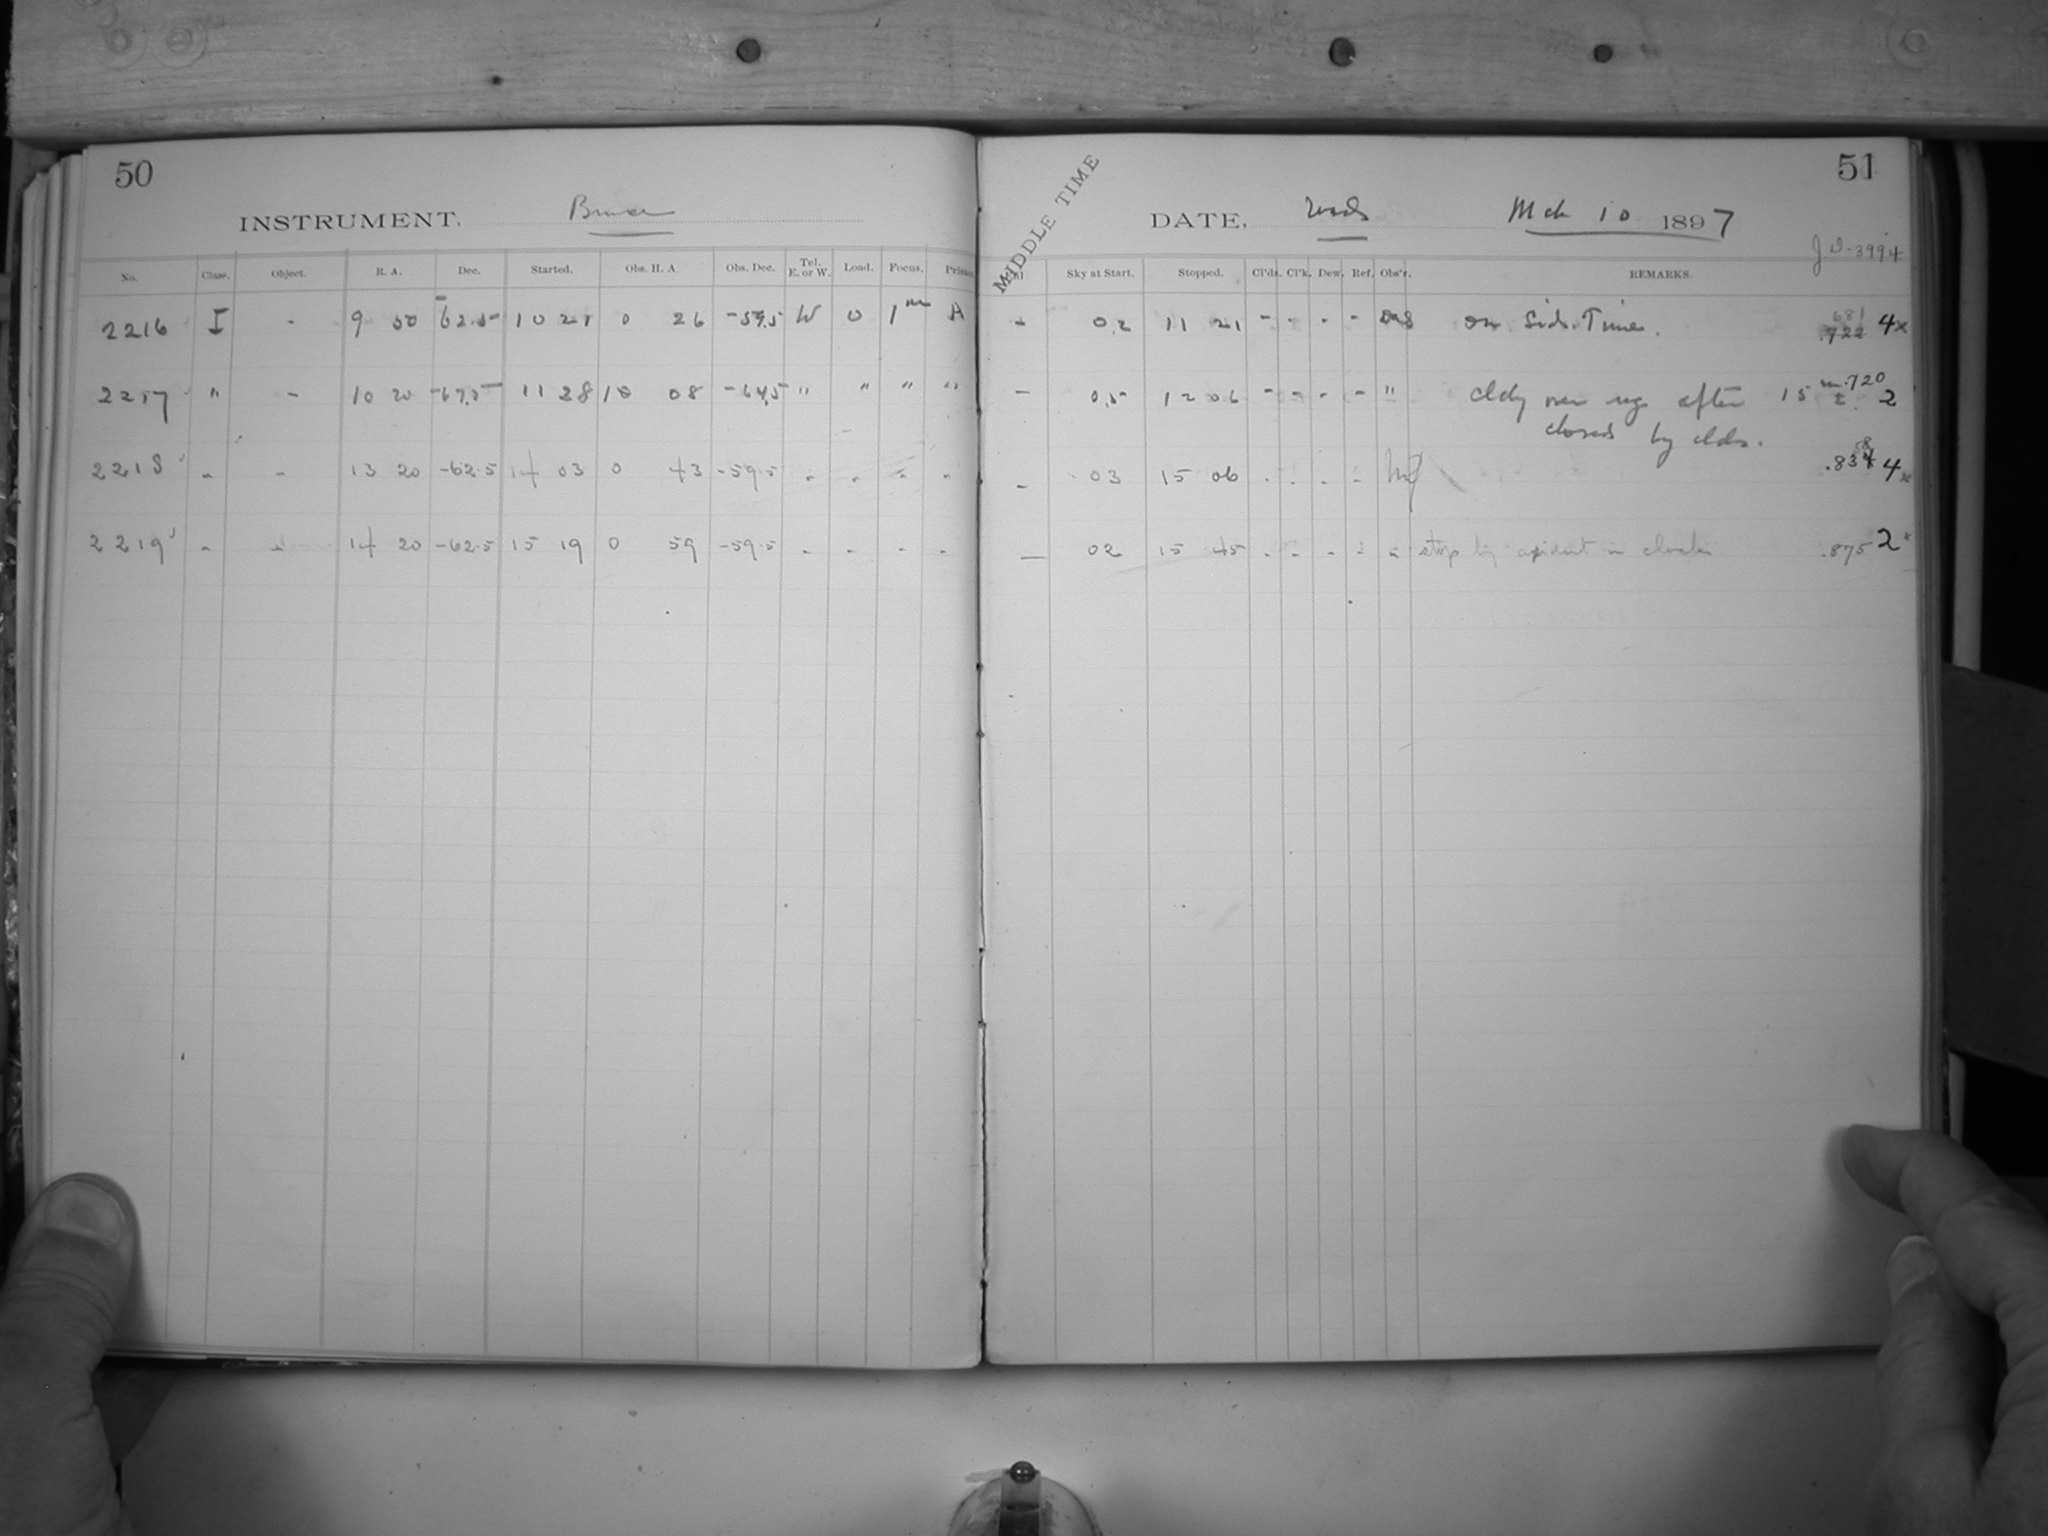 50
INSTRUMENT. Bruce
No. Class. Object. R. A. Dec. Started. Obs. H. A. Obs. Dec. Tel. E. or W. Load. Focus. Prism.
2216 I - 9 50 -62.5 10 21 0 26 -59.5 W 0 1 m A
2217 " - 10 20 -67.5 11 28 10 08 -64.5 " " " "
2218 " - 13 20 -62.5 14 03 0 43 -59.5 " " " "
2219 " - 14 20 -62.5 15 19 0 59 -59.5 " " " "
51
MIDDLE TIME
DATE, Weds Mch 10 1897
J D-3994
Sky at Start. Stopped. Cl'ds. Cl'k. Dew. Ref. Obs'r. REMARKS.
- 02 11 21 - - - - on Sid. Time. .681 .722 4x
- 05 12 06 - - - - " cldy over reg after 15 m .720 ± 2
closed by clds.
- 03 15 06 - - - - .834 58 4x
- 02 15 45 - - - - " stop by accident in clock .875 2x